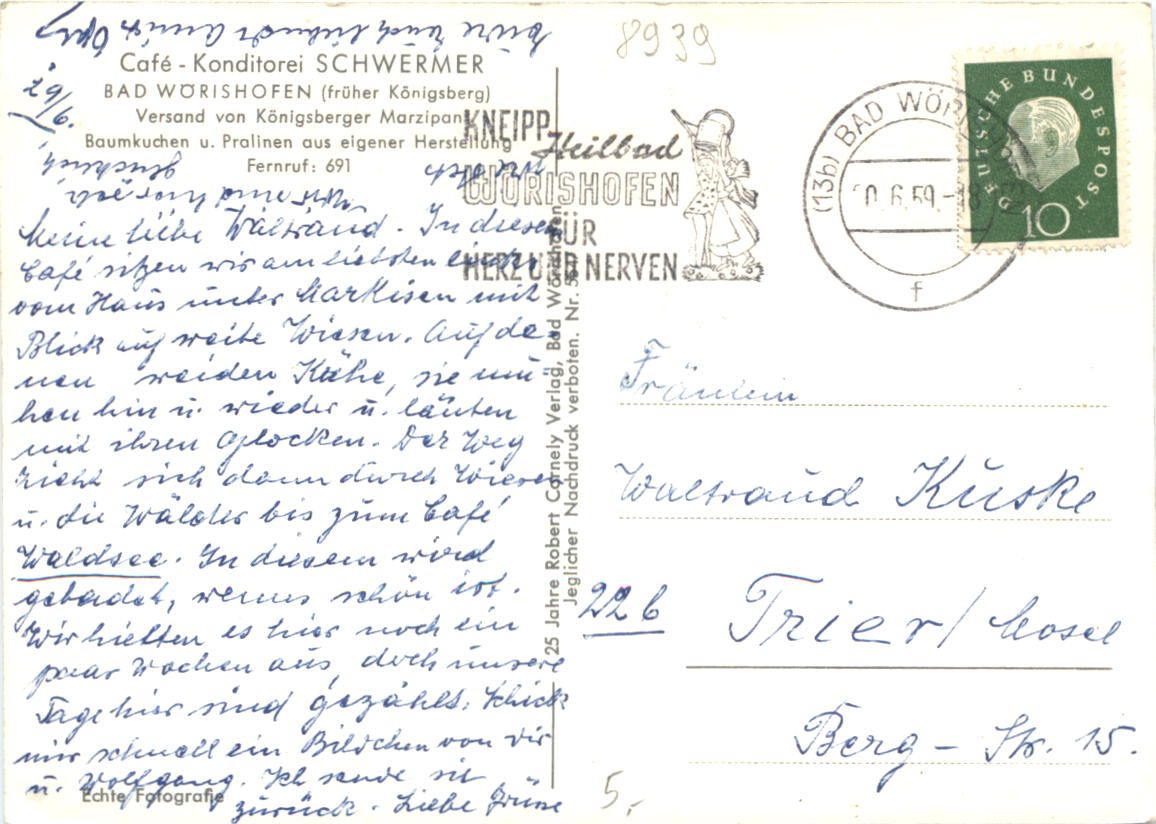 8939
Café - Konditorei SCHWERMER
BAD WÖRISHOFEN (früher Königsberg)
Versand von Königsberger Marzipan
Baumkuchen u. Pralinen aus eigener Herstellung
Fernruf: 691
29/6.
Meine liebe Waltraud. In diesem
Café sitzen wir am liebsten
vom Haus unter Markisen mit
Blick auf weite Wiesen. Auf de-
nen weiden Kühe, sie mu-
hen hin u. wieder u. läuten
mit ihren Glocken. Der Weg
zieht sich dann durch Wiesen
u. die Wälder bis zum Café
Waldsee. In diesem wird
gebadet, wenns schön ist.
Wir hielten es hier noch ein
paar Wochen aus, doch unsere
Tage hier sind gezählt. Schick
mir schnell ein Bildchen von Dir
u. Wolfgang. Ich sende sie
zurück. Liebe Grüsse
Echte Fotografie
25 Jahre Robert Cornely Verlag, Bad Wörishofen
Jeglicher Nachdruck verboten. Nr.
KNEIPP
Heilbad
WÖRISHOFEN
FÜR
HERZ UND NERVEN
(13b) BAD WÖRISHOFEN
0.6.59.-18
f
DEUTSCHE BUNDESPOST
10
Fräulein
Waltraud Kuske
22b
Trier / Mosel
Berg - Str. 15.
5,-